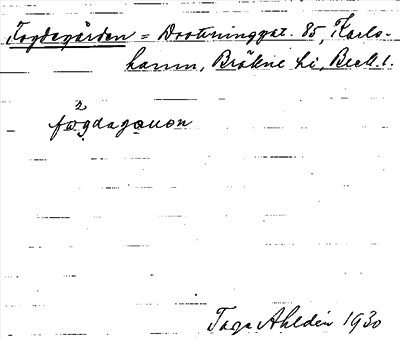 Fogdegården = Drottninggat. 85, Karls-
hamn, Bräkne hd, Blek. l.
2
fogdagauon
Tage Ahldén 1930